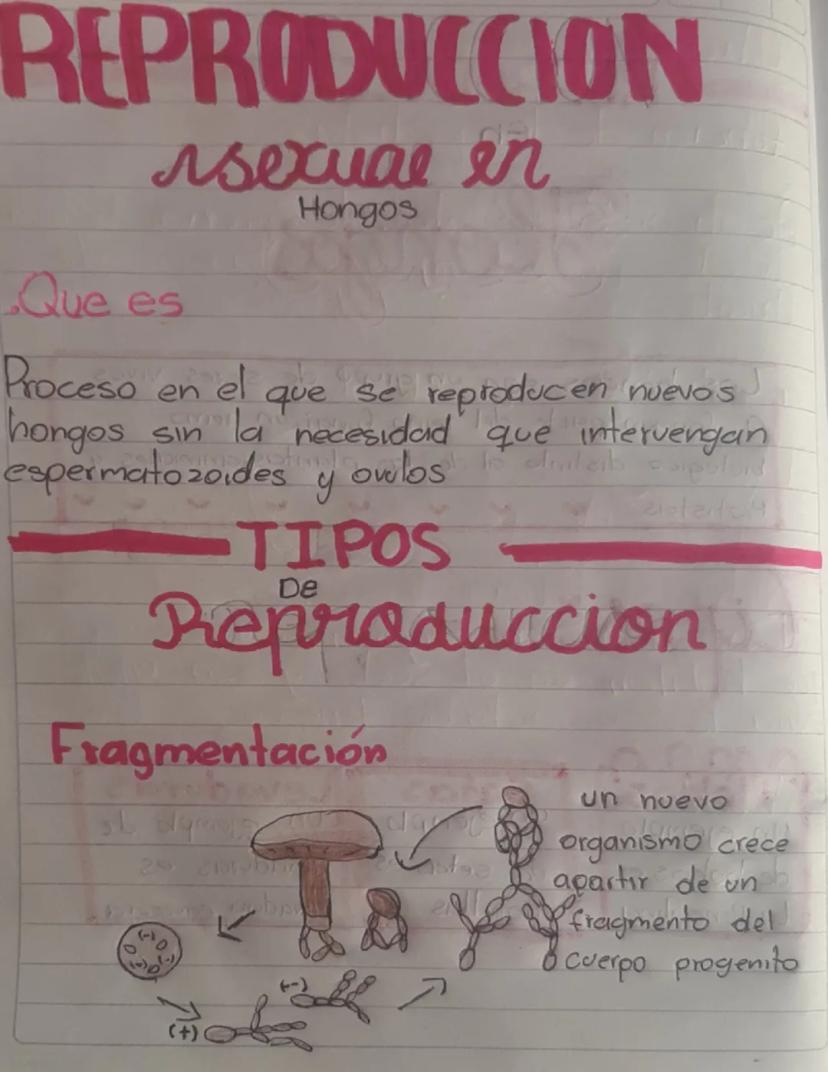 REPRODUCCION
Asexual en
Hongos
.Que es
Proceso en el que se reproducen nuevos
hongos sin la necesidad que intervengan
espermatozoides y ovulos
TIPOS
De
Reproduccion
Fragmentación
un nuevo
organismo crece
apartir de un
fragmento del
cuerpo progenito
(-)
(-)
(-)
(-)
(+)